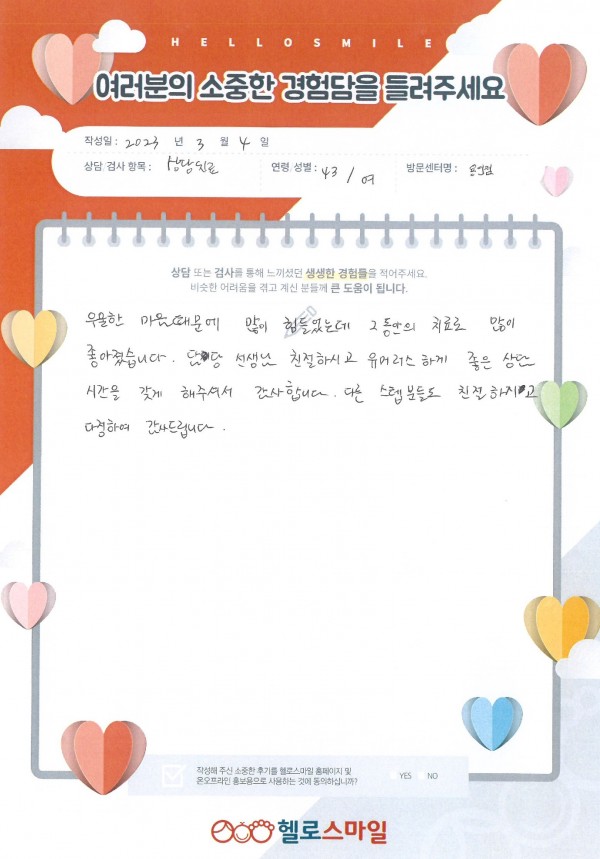 HELLOSMILE
여러분의 소중한 경험담을 들려주세요
작성일 : 2023 년 3 월 4 일
상담 검사 항목 : 상담치료 연령, 성별 : 43 / 여 방문센터명 :
상담 또는 검사를 통해 느끼셨던 생생한 경험들을 적어주세요.
비슷한 어려움을 겪고 계신 분들께 큰 도움이 됩니다.
우울한 마음때문에 많이 힘들었는데 그동안의 치료로 많이
좋아졌습니다. 담당 선생님 친절하시고 유머러스하게 좋은 상담
시간을 갖게 해주셔서 감사합니다. 다른 스텝분들도 친절하시고
다정하여 감사드립니다.
작성해 주신 소중한 후기를 헬로스마일 홈페이지 및
온오프라인 홍보용으로 사용하는 것에 동의하십니까? YES NO
헬로스마일